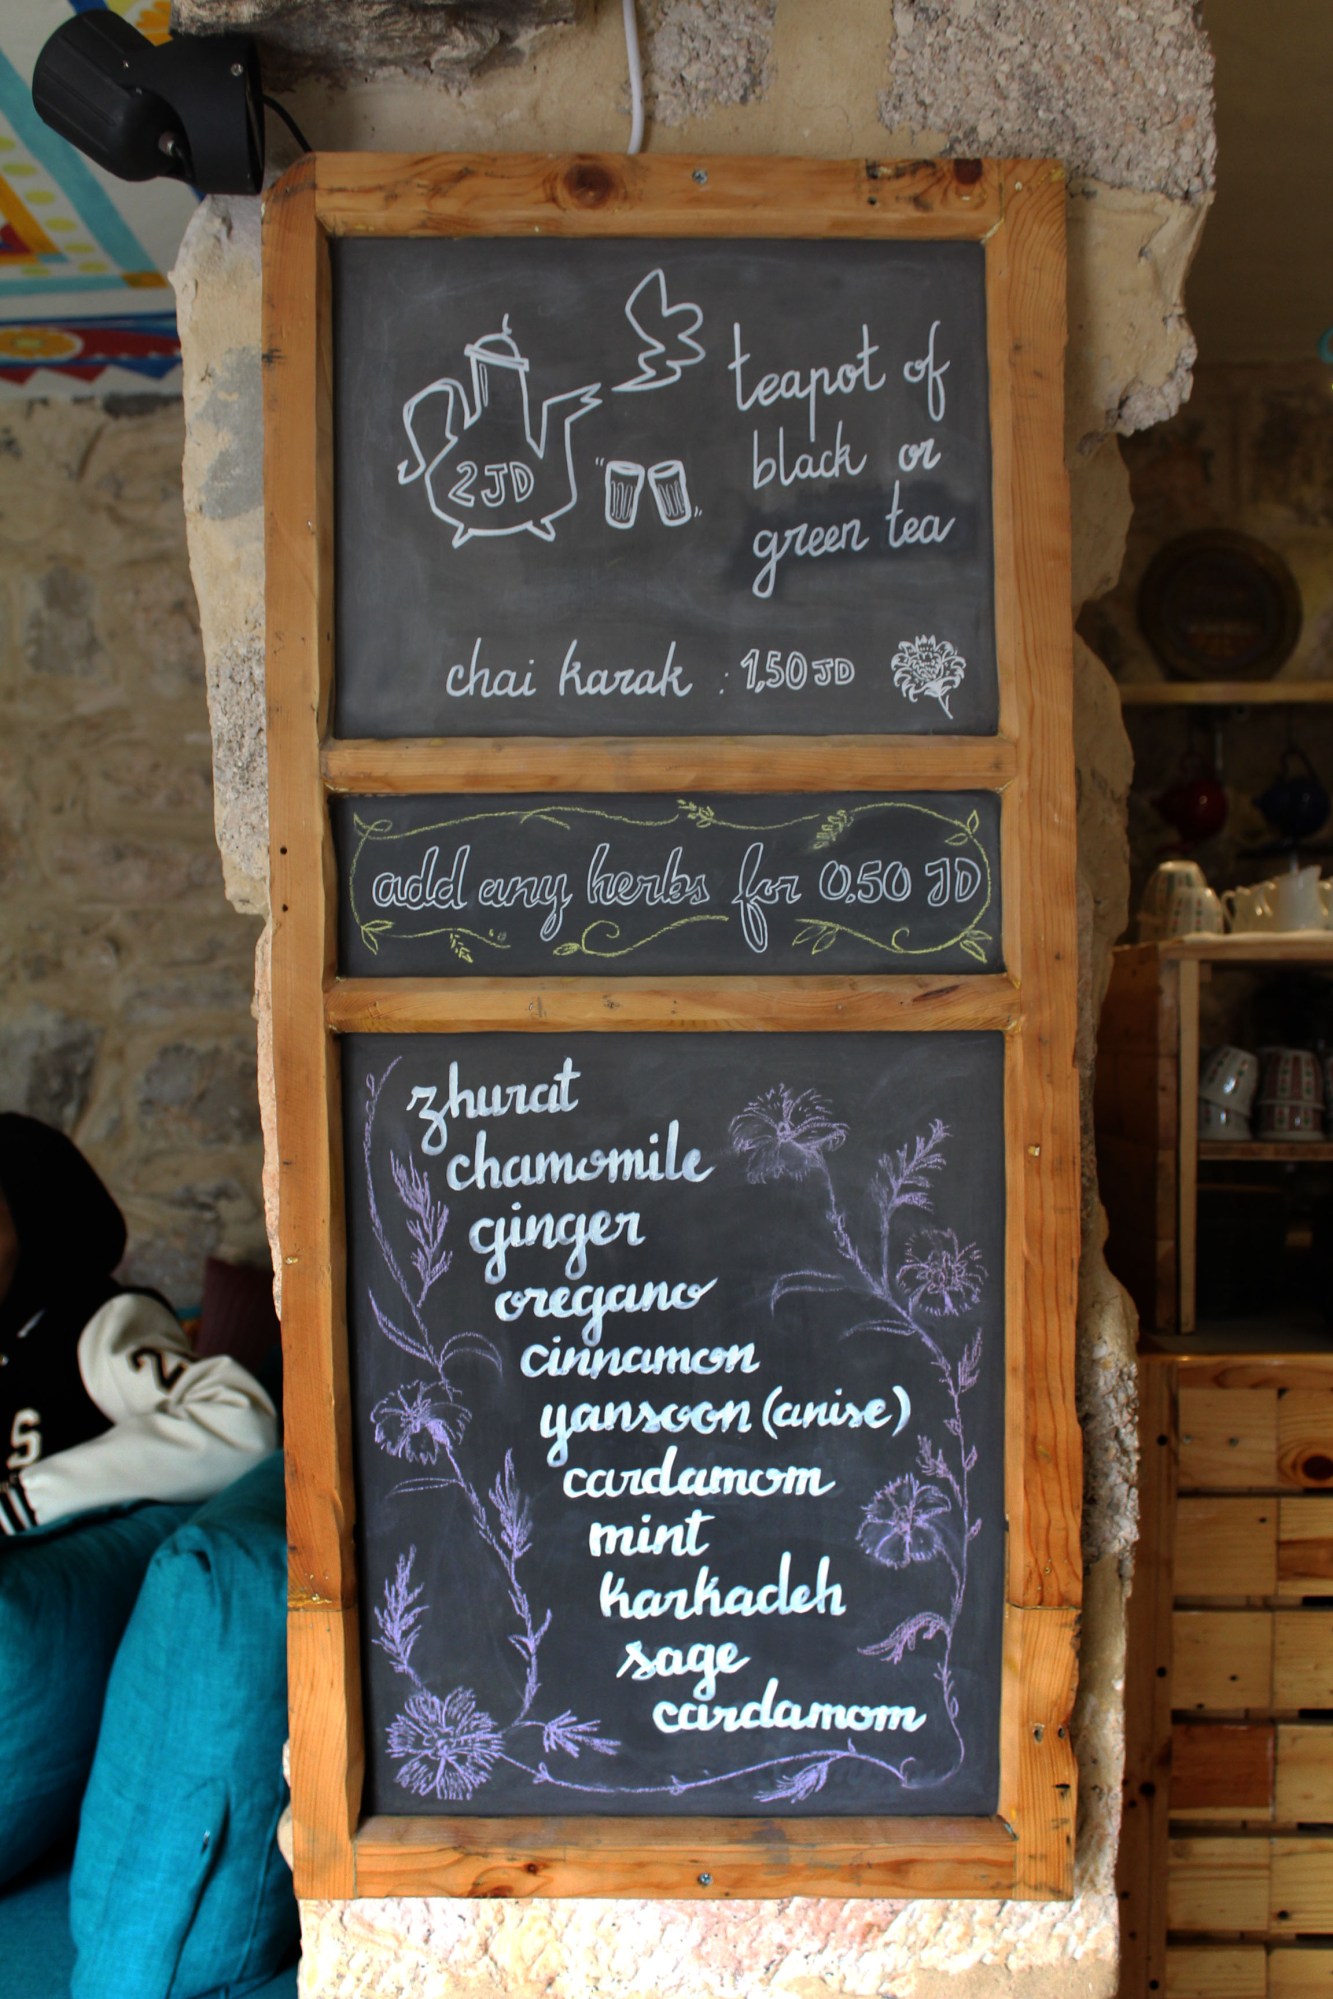 2JD
teapot of
black or
green tea
chai karak : 1,50 JD
add any herbs for 0.50 JD
zhurat
chamomile
ginger
oregano
cinnamon
yansoon (anise)
cardamom
mint
karkadeh
sage
cardamom
2
S